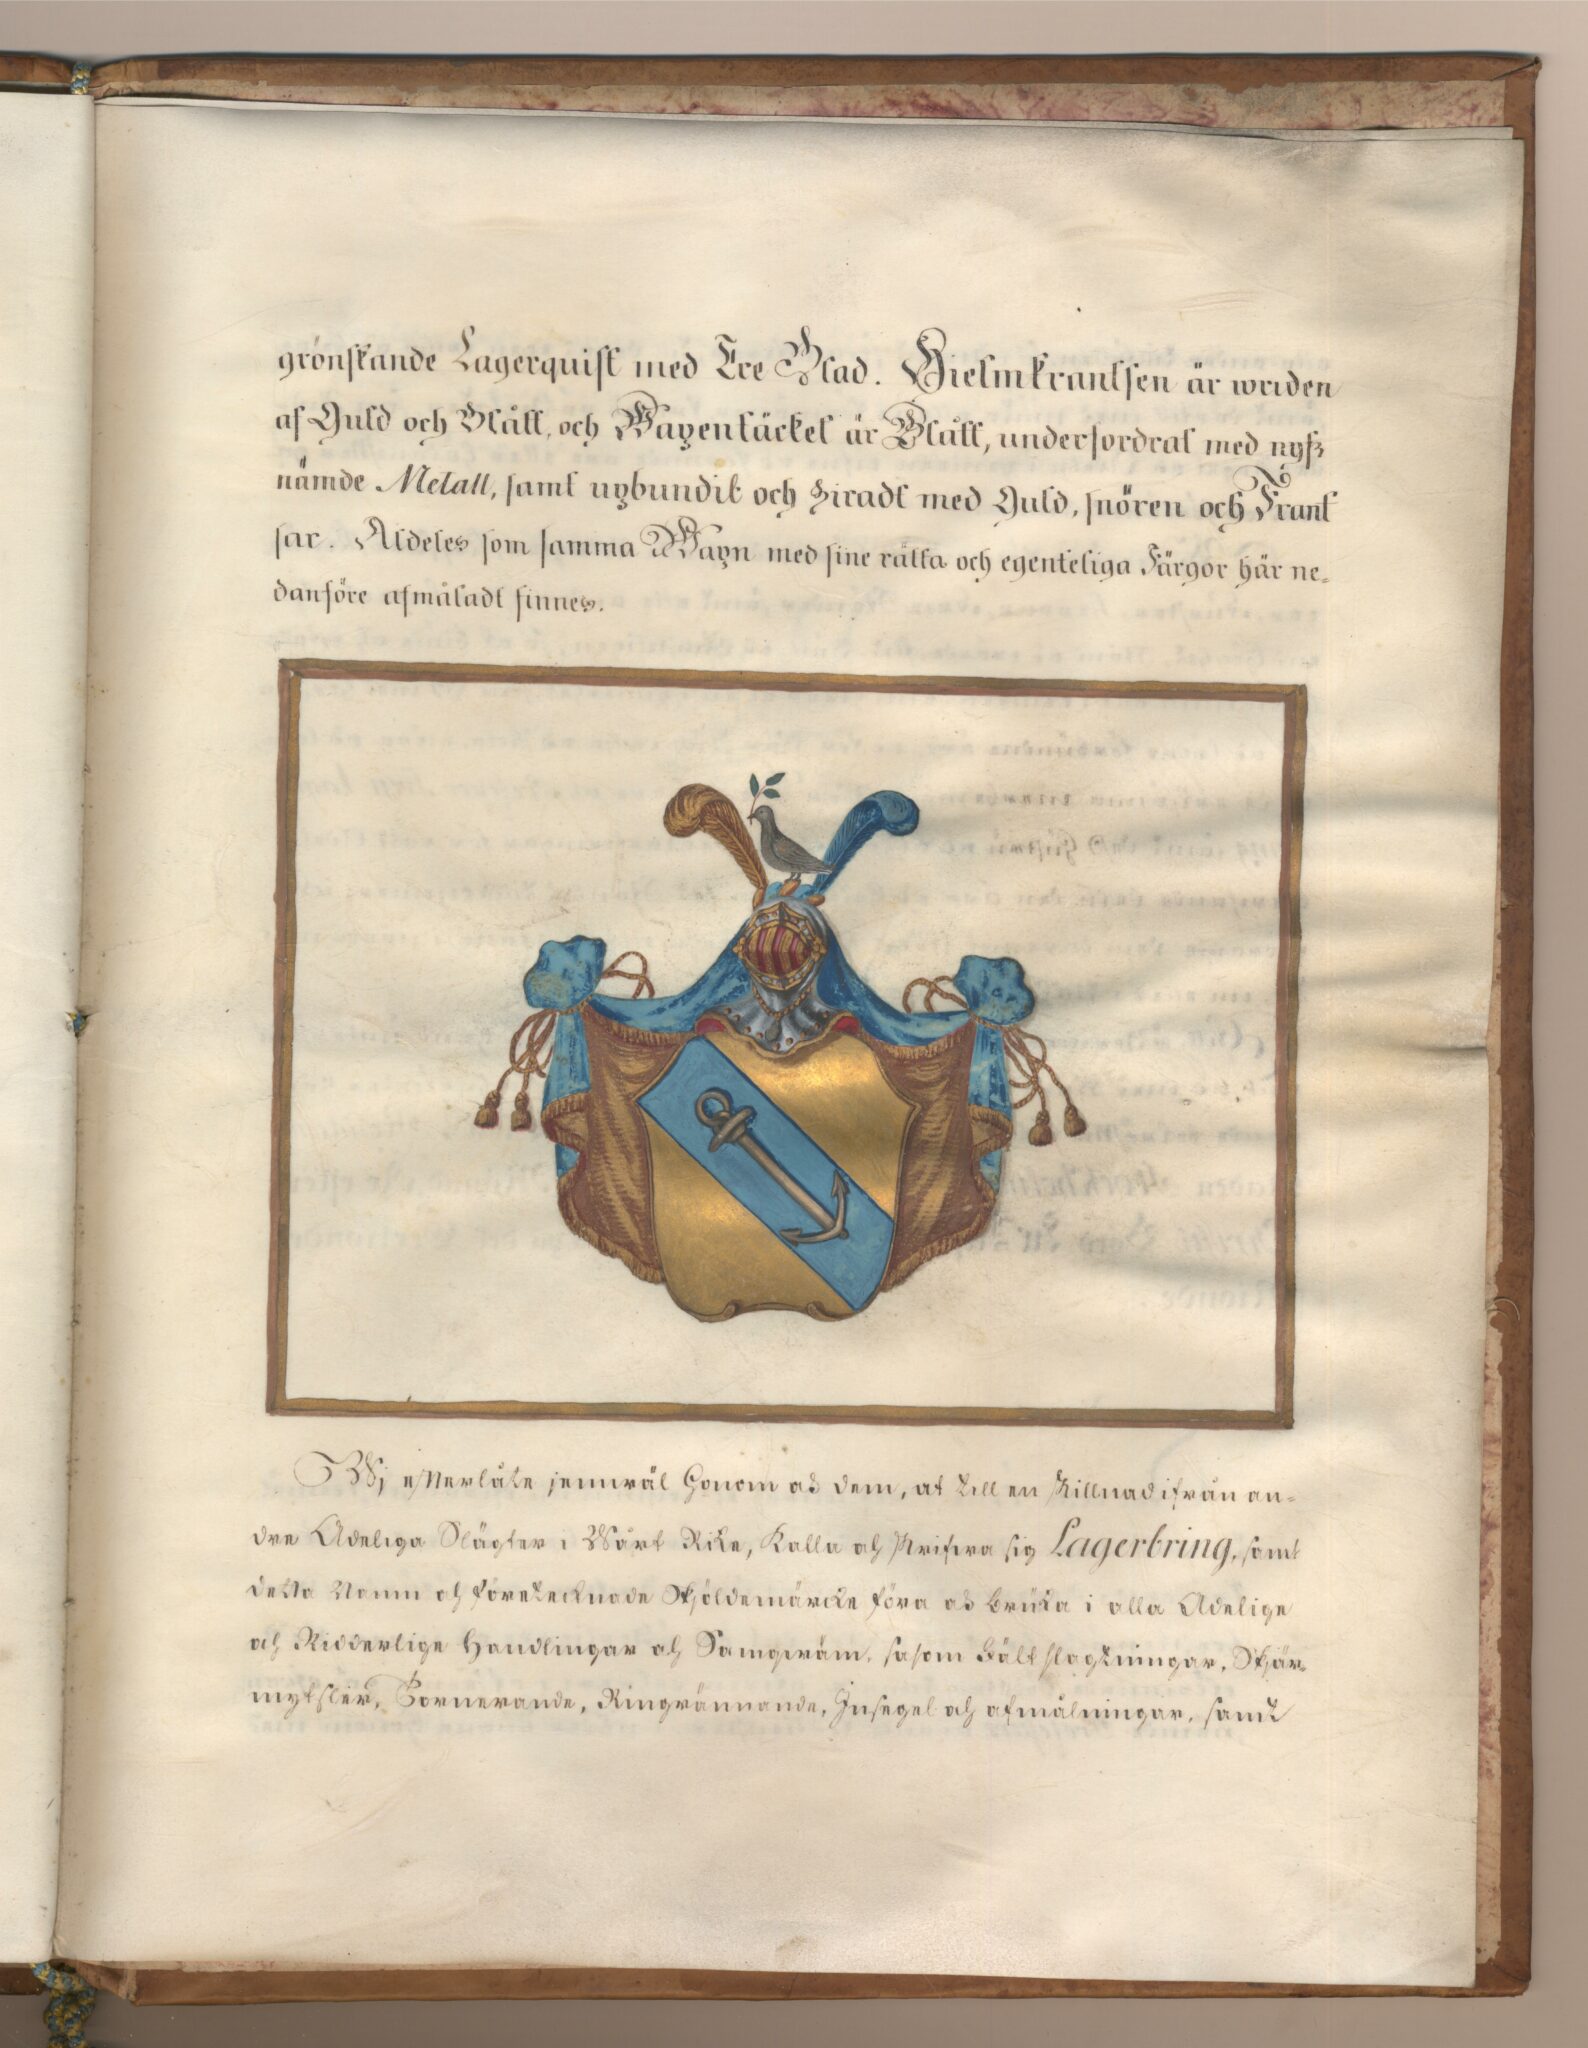 grönskande Lagerquist med Tre Blad. Hielmkrantsen är wriden
af Guld och Blått, och Wapentäcket är Blått, underfordrat med nyß
nämde Metall, samt upbundit och ziradt med Guld, snören och Frant
sar. Aldeles som samma Wapn med sine rätta och egenteliga Färgor här ne-
danföre afmåladt finnes.
Wj efterlåte jemwäl Honom och dem, at till en skillnad ifrån an-
dre Adeliga Slägter i Wårt Rike, kalla och skrifwa sig Lagerbring, samt
detta Namn och företecknade Skjöldemärcke föra och bruka i alla Adelige
och Ridderlige Handlingar och Samqwäm, såsom Fältslagtningar, Skjär-
mytsler, Tornerande, Ringrännande, Insegel och afmålningar, samt